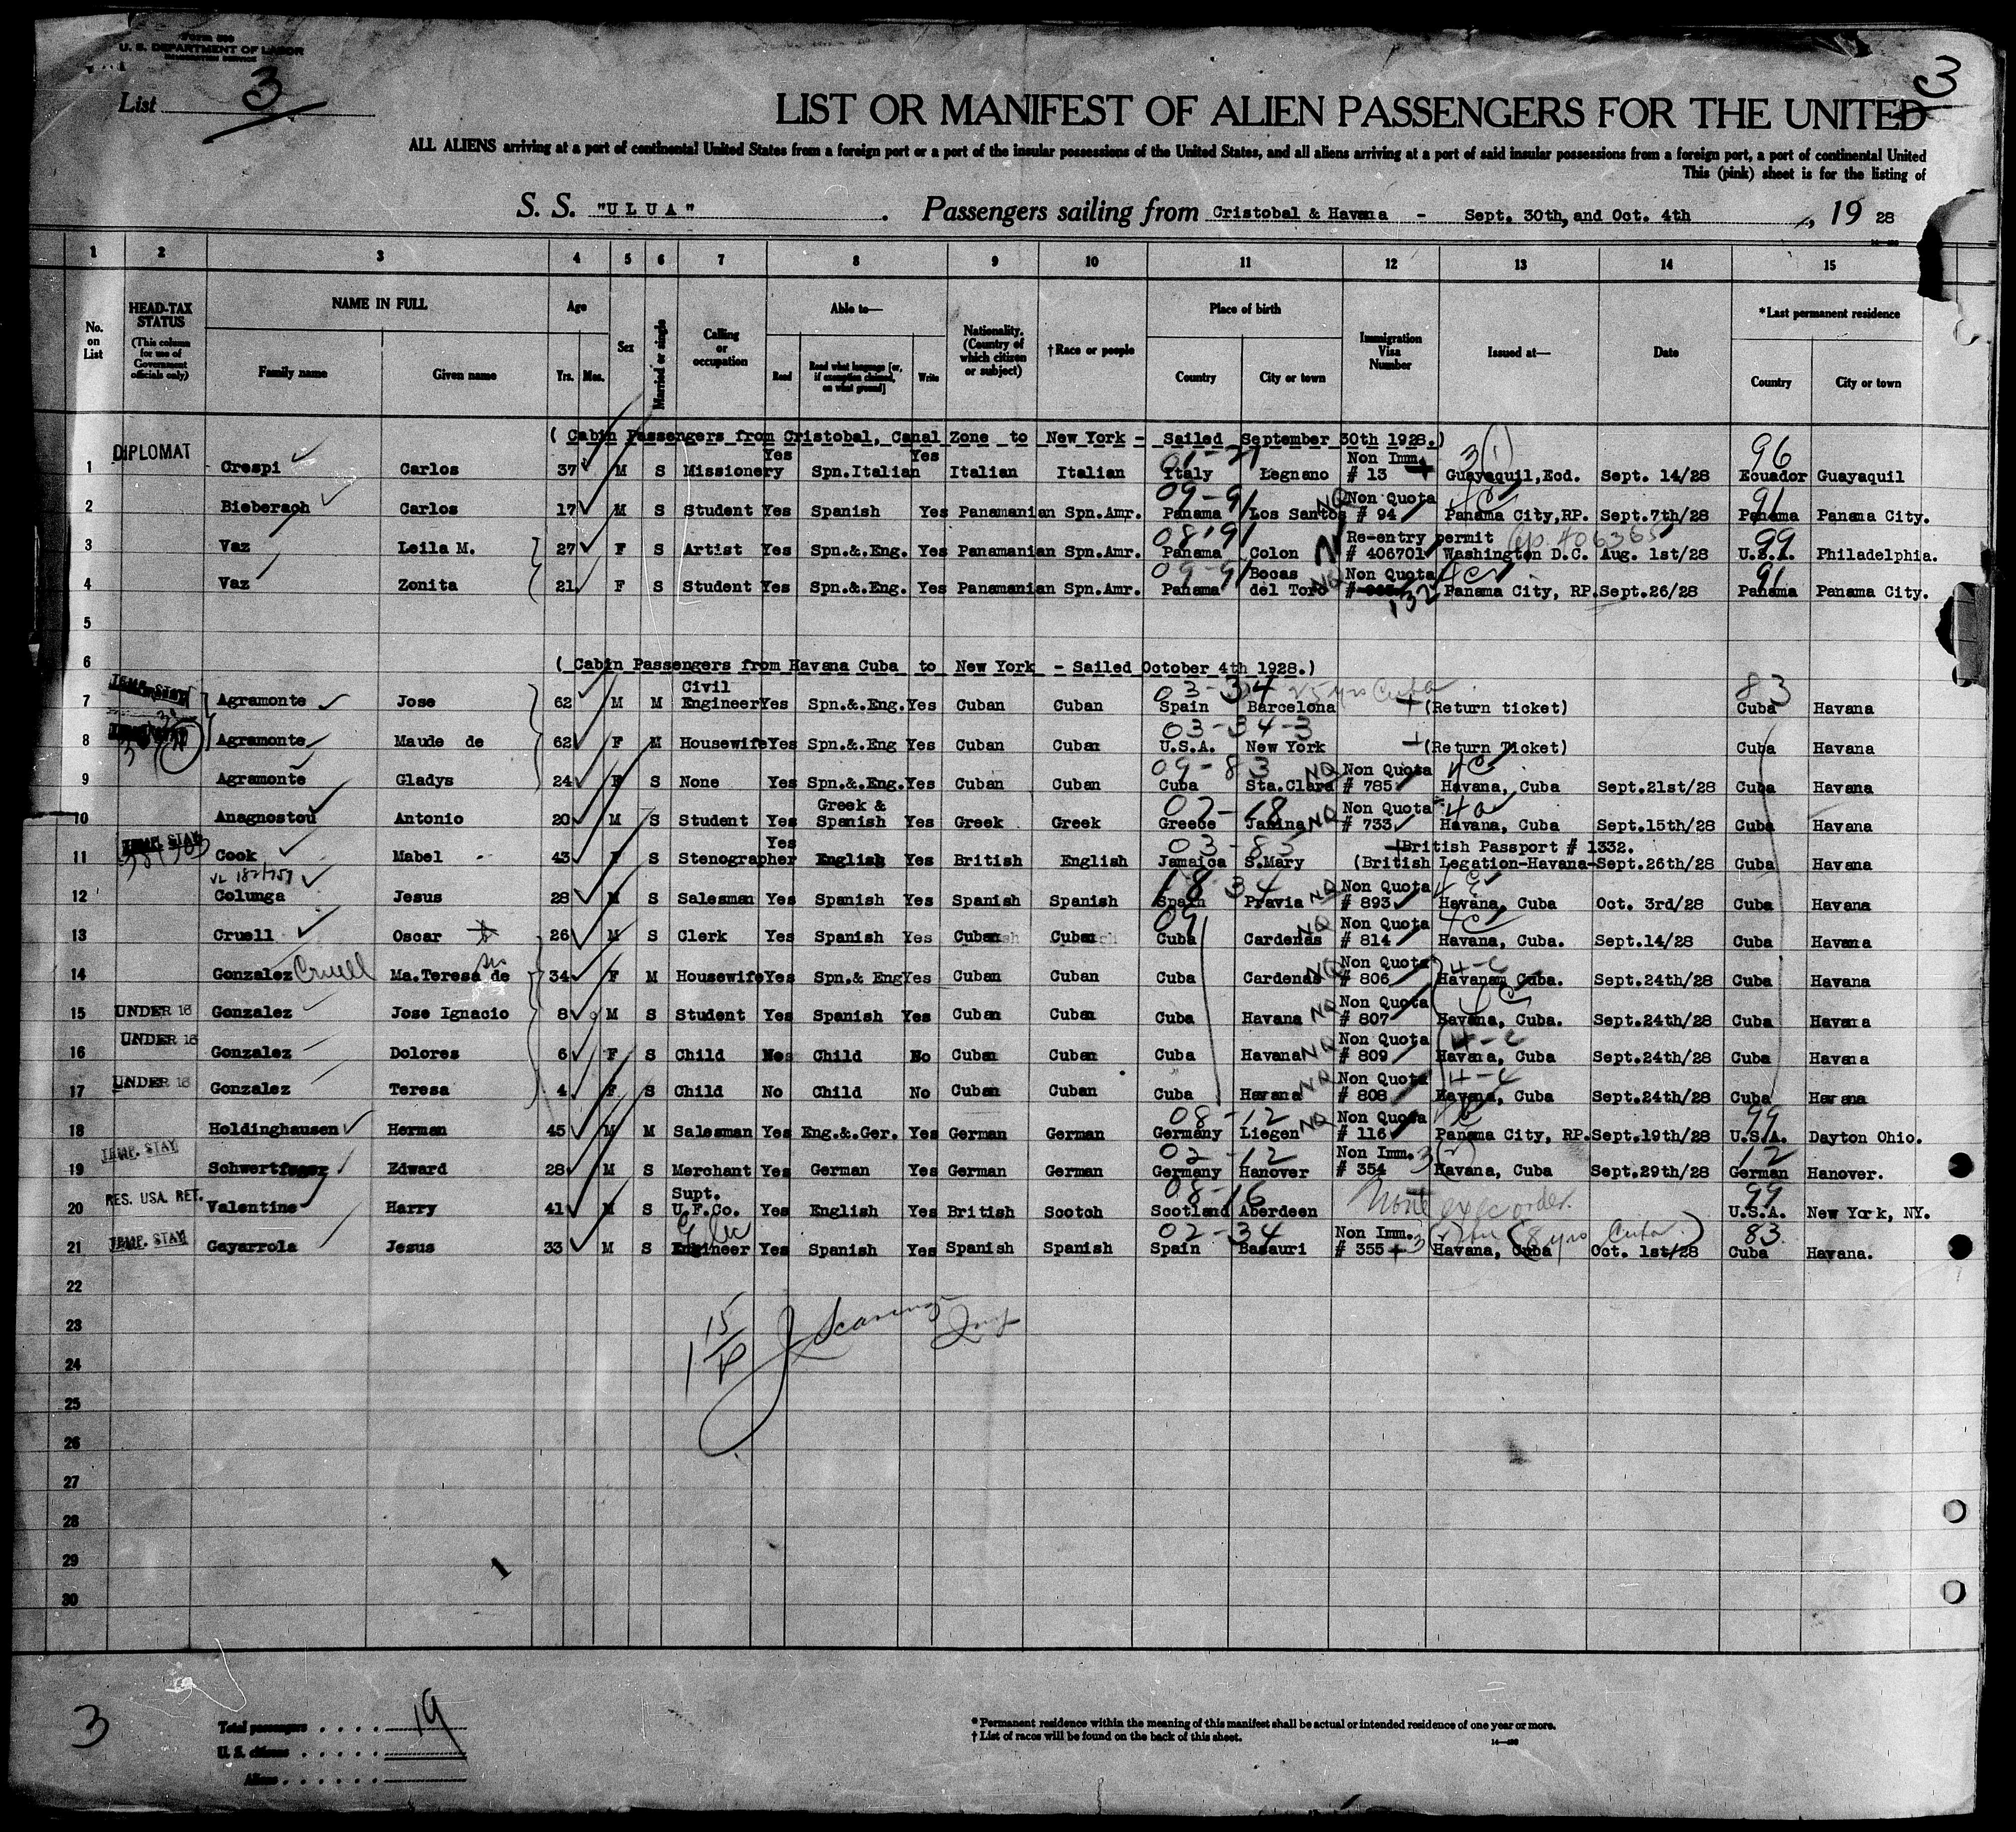 Form 500
U. S. DEPARTMENT OF LABOR
IMMIGRATION SERVICE
List 3
3
LIST OR MANIFEST OF ALIEN PASSENGERS FOR THE UNITED
ALL ALIENS arriving at a port of continental United States from a foreign port or a port of the insular possessions of the United States, and all aliens arriving at a port of said insular possessions from a foreign port, a port of continental United
This (pink) sheet is for the listing of
S. S. "ULUA" . Passengers sailing from Cristobal & Havana - Sept. 30th, and Oct. 4th , 19 28
1 2 3 4 5 6 7 8 9 10 11 12 13 14 15
No. on List HEAD-TAX STATUS (This column for use of Government officials only) NAME IN FULL Family name Given name Age Yrs. Mos. Sex Married or single Calling or occupation Able to— Read Read what language [or, if exemption claimed, on what ground] Write Nationality. (Country of which citizen or subject) †Race or people Place of birth Country City or town Immigration Visa Number Issued at— Date *Last permanent residence Country City or town
( Cabin Passengers from Cristobal, Canal Zone to New York - Sailed September 30th 1928.)
1 DIPLOMAT Crespi Carlos 37 M S Missionery Yes Spn.Italian Yes Italian Italian 01-27 Italy Legnano Non Imm. # 13 3(1) Guayaquil,Ecd. Sept. 14/28 96 Ecuador Guayaquil
2 Bieberach Carlos 17 M S Student Yes Spanish Yes Panamanian Spn.Amr. 09-91 Panama Los Santos NQ Non Quota # 94 4C Panama City,RP. Sept.7th/28 91 Panama Panama City.
3 Vaz Leila M. 27 F S Artist Yes Spn.&.Eng. Yes Panamanian Spn.Amr. 08-91 Panama Colon Re-entry permit # 406701 Washington D.C. Aug. 1st/28 99 U.S.A. Philadelphia.
4 Vaz Zonita 21 F S Student Yes Spn.&.Eng. Yes Panamanian Spn.Amr. 09-91 Panama Bocas del Toro NQ Non Quota # 132 4C Panama City, RP. Sept.26/28 91 Panama Panama City.
5
6 ( Cabin Passengers from Havana Cuba to New York - Sailed October 4th 1928.)
7 TEMP. STAY Agramonte Jose 62 M M Civil Engineer Yes Spn.&.Eng. Yes Cuban Cuban 03-34 25 yrs Cuba Spain Barcelona (Return ticket) 83 Cuba Havana
8 Agramonte Maude de 62 F M Housewife Yes Spn.&.Eng Yes Cuban Cuban 03-34-3 U.S.A. New York (Return Ticket) Cuba Havana
9 Agramonte Gladys 24 F S None Yes Spn.&.Eng. Yes Cuban Cuban 09-83 Cuba Sta.Clara NQ Non Quota # 785 4C Havana, Cuba Sept.21st/28 Cuba Havana
10 Anagnostou Antonio 20 M S Student Yes Greek & Spanish Yes Greek Greek 02-18 Greece Janina NQ Non Quota # 733 4a Havana, Cuba Sept.15th/28 Cuba Havana
11 TEMP. STAY Cook Mabel 43 F S Stenographer Yes English Yes British English 03-85 Jamaica S.Mary (British Passport # 1332. (British Legation-Havana-Sept.26th/28 Cuba Havana
12 Colunga Jesus 28 M S Salesman Yes Spanish Yes Spanish Spanish 18 34 Spain Pravia NQ Non Quota # 893 Havana, Cuba Oct. 3rd/28 Cuba Havana
13 Cruell Oscar 26 M S Clerk Yes Spanish Yes Cuban Cuban 09 Cuba Cardenas NQ Non Quota # 814 4C Havana, Cuba. Sept.14/28 Cuba Havana
14 Gonzalez Cruell Ma.Teresa de 34 F M Housewife Yes Spn.& Eng Yes Cuban Cuban Cuba Cardenas NQ Non Quota # 806 4-C Havanam Cuba. Sept.24th/28 Cuba Havana
15 UNDER 16 Gonzalez Jose Ignacio 8 M S Student Yes Spanish Yes Cuban Cuban Cuba Havana NQ Non Quota # 807 4C Havana, Cuba. Sept.24th/28 Cuba Havana
16 UNDER 16 Gonzalez Dolores 6 F S Child No Child No Cuban Cuban Cuba Havana NQ Non Quota # 809 4-C Havana, Cuba Sept.24th/28 Cuba Havana
17 UNDER 16 Gonzalez Teresa 4 F S Child No Child No Cuban Cuban Cuba Havana NQ Non Quota # 808 4-C Havana, Cuba Sept.24th/28 Cuba Havana
18 Holdinghausen Herman 45 M M Salesman Yes Eng.&.Ger. Yes German German 08-12 Germany Liegen NQ Non Quota # 116 Panama City, RP. Sept.19th/28 99 U.S.A. Dayton Ohio.
19 TEMP. STAY Schwertfeger Edward 28 M S Merchant Yes German Yes German German 02-12 Germany Hanover Non Imm. # 354 3(2) Havana, Cuba Sept.29th/28 12 German Hanover.
20 RES. USA. RET. Valentine Harry 41 M S Supt. U.F.Co. Yes English Yes British Scotch 08-16 Scotland Aberdeen None exec order. 99 U.S.A. New York, NY.
21 TEMP. STAY Gayarrola Jesus 33 M S Elec Engineer Yes Spanish Yes Spanish Spanish 02-34 Spain Basauri Non Imm. # 355 3 (8 yrs Cuba) Havana, Cuba Oct. 1st/28 83 Cuba Havana.
22
23
24
25
26
27
28
29
30
3
Total passengers . . . . 19
U. S. citizens . . . . .
Aliens . . . . . .
* Permanent residence within the meaning of this manifest shall be actual or intended residence of one year or more.
† List of races will be found on the back of this sheet.